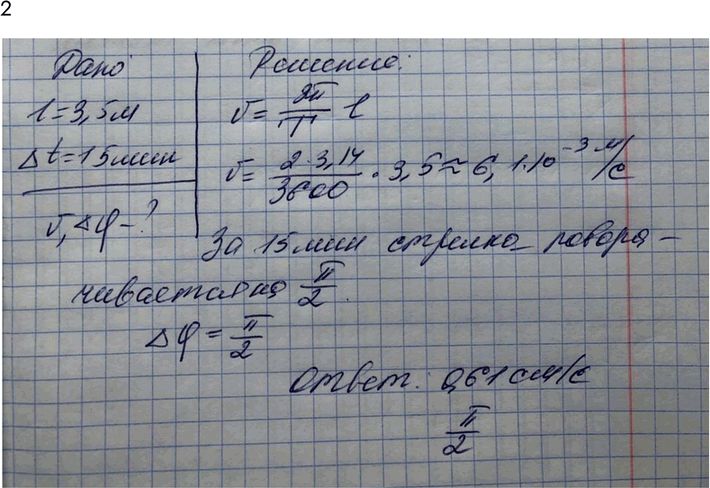 2
Дано
l = 3,5 м
Δt = 15 мин
v, Δφ - ?
Решение:
v = 2π/T l
v = 2·3,14/3600 · 3,5 ≈ 6,1·10⁻³ м/с
За 15 мин стрелка повора-
чивается на π/2.
Δφ = π/2
Ответ: 0,61 см/с
π/2